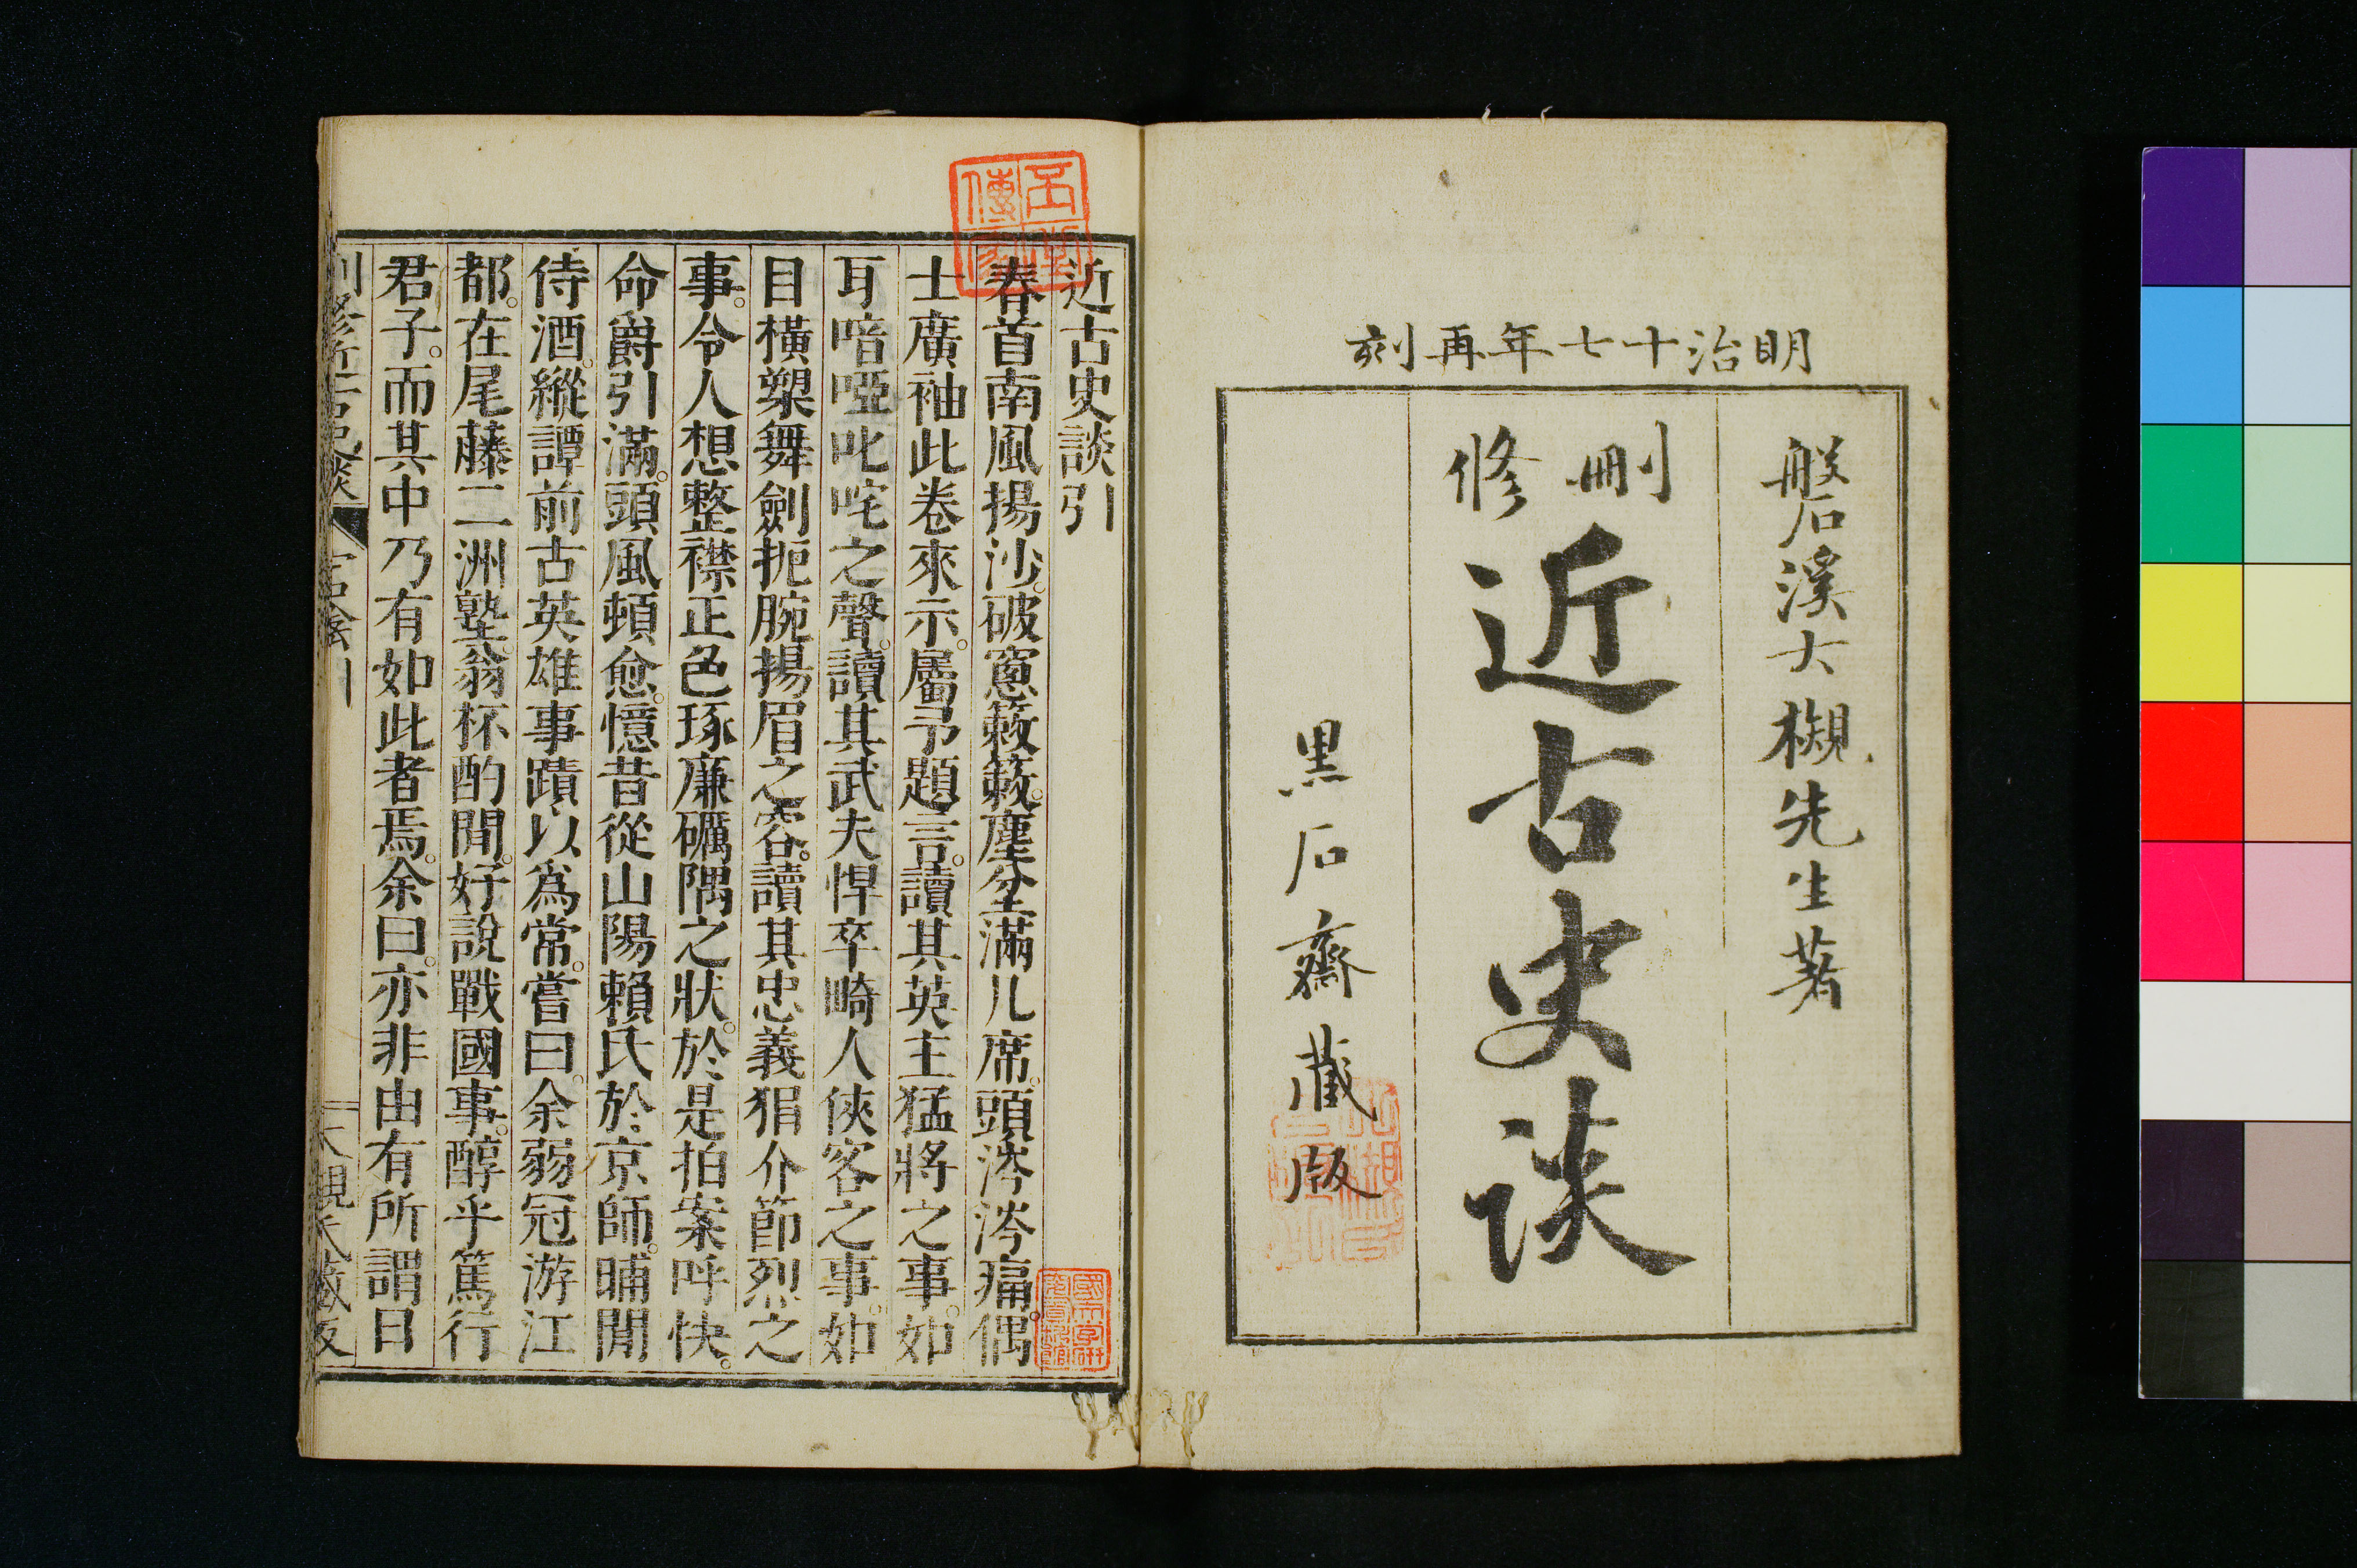 明治十七年再刻
磐溪大槻先生著
刪修
近古史談
黒石齋藏版
近古史談引
春首南風揚沙。破窻簌簌。塵坌滿几席。頭涔涔痛。偶
士廣袖此卷來示。屬予題言。讀其英主猛將之事。如
耳喑啞叱咤之聲。讀其武夫悍卒畸人俠客之事。如
目橫槊舞劍扼腕揚眉之容。讀其忠義狷介節烈之
事。令人想整襟正色琢廉礪隅之狀。於是拍案呼快。
命爵引滿。頭風頓愈。憶昔從山陽賴氏於京師。晡閒
侍酒。縱譚前古英雄事蹟以爲常。嘗曰。余弱冠游江
都。在尾藤二洲塾。翁杯酌閒。好說戰國事。醇乎篤行
君子。而其中乃有如此者焉。余曰。亦非由有所謂日